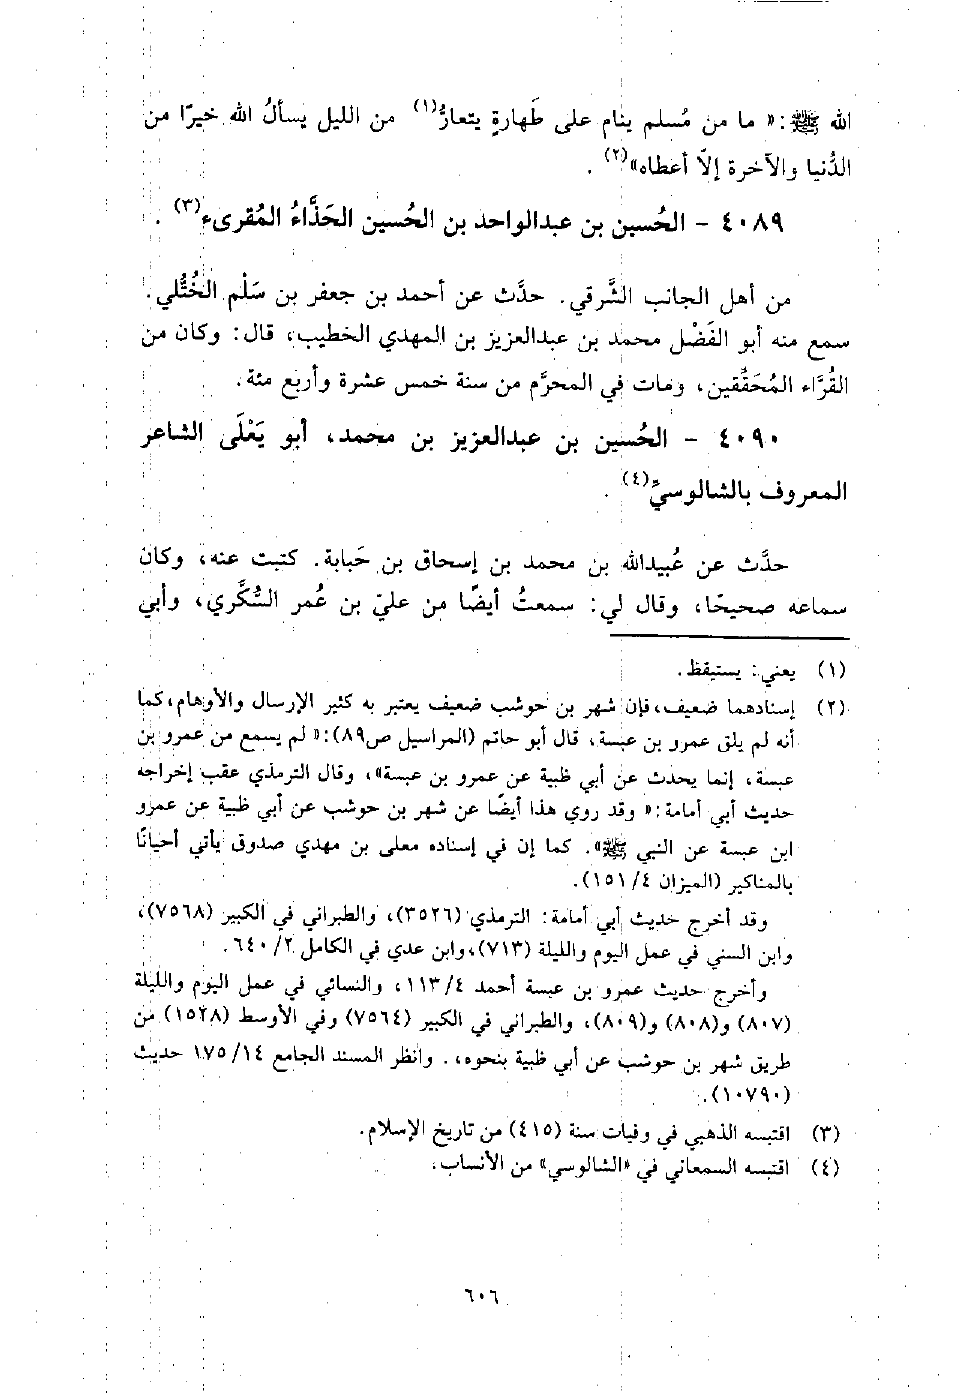 الله ﷺ: « ما من مُسلم ينام على طَهارةٍ يتعارُّ(١) من الليل يسألُ الله خيرًا من
الدُّنيا والآخرة إلّا أعطاه»(٢) .
٤٠٨٩ - الحُسين بن عبدالواحد بن الحُسين الحَذَّاءُ المُقرىء(٣) .
من أهل الجانب الشَّرقي. حدَّث عن أحمد بن جعفر بن سَلْم الخُتُّلي.
سمع منه أبو الفَضْل محمد بن عبدالعزيز بن المهدي الخطيب، قال: وكان من
القُرَّاء المُحَقِّقين، ومات في المحرَّم من سنة خمس عشرة وأربع مئة.
٤٠٩٠ - الحُسين بن عبدالعزيز بن محمد، أبو يَعْلَى الشاعر
المعروف بالشالوسيِّ(٤) .
حدَّث عن عُبيدالله بن محمد بن إسحاق بن حَبابة. كتبت عنه، وكان
سماعه صحيحًا، وقال لي: سمعتُ أيضًا من عليّ بن عُمر السُّكَّري، وأبي
(١) يعني: يستيقظ.
(٢) إسنادهما ضعيف، فإن شهر بن حوشب ضعيف يعتبر به كثير الإرسال والأوهام، كما
أنه لم يلق عمرو بن عبسة، قال أبو حاتم (المراسيل ص٨٩): « لم يسمع من عمرو بن
عبسة، إنما يحدث عن أبي ظبية عن عمرو بن عبسة»، وقال الترمذي عقب إخراجه
حديث أبي أمامة: « وقد روي هذا أيضًا عن شهر بن حوشب عن أبي ظبية عن عمرو
ابن عبسة عن النبي ﷺ». كما إن في إسناده معلى بن مهدي صدوق يأتي أحيانًا
بالمناكير (الميزان ٤/ ١٥١).
وقد أخرج حديث أبي أمامة: الترمذي (٣٥٢٦)، والطبراني في الكبير (٧٥٦٨)،
وابن السني في عمل اليوم والليلة (٧١٣)، وابن عدي في الكامل ٢/ ٦٤٠ .
وأخرج حديث عمرو بن عبسة أحمد ٤/ ١١٣، والنسائي في عمل اليوم والليلة
(٨٠٧) و(٨٠٨) و(٨٠٩)، والطبراني في الكبير (٧٥٦٤) وفي الأوسط (١٥٢٨) من
طريق شهر بن حوشب عن أبي ظبية بنحوه،. وانظر المسند الجامع ١٤/ ١٧٥ حديث
(١٠٧٩٠).
(٣) اقتبسه الذهبي في وفيات سنة (٤١٥) من تاريخ الإسلام.
(٤) اقتبسه السمعاني في «الشالوسي» من الأنساب.
٦٠٦